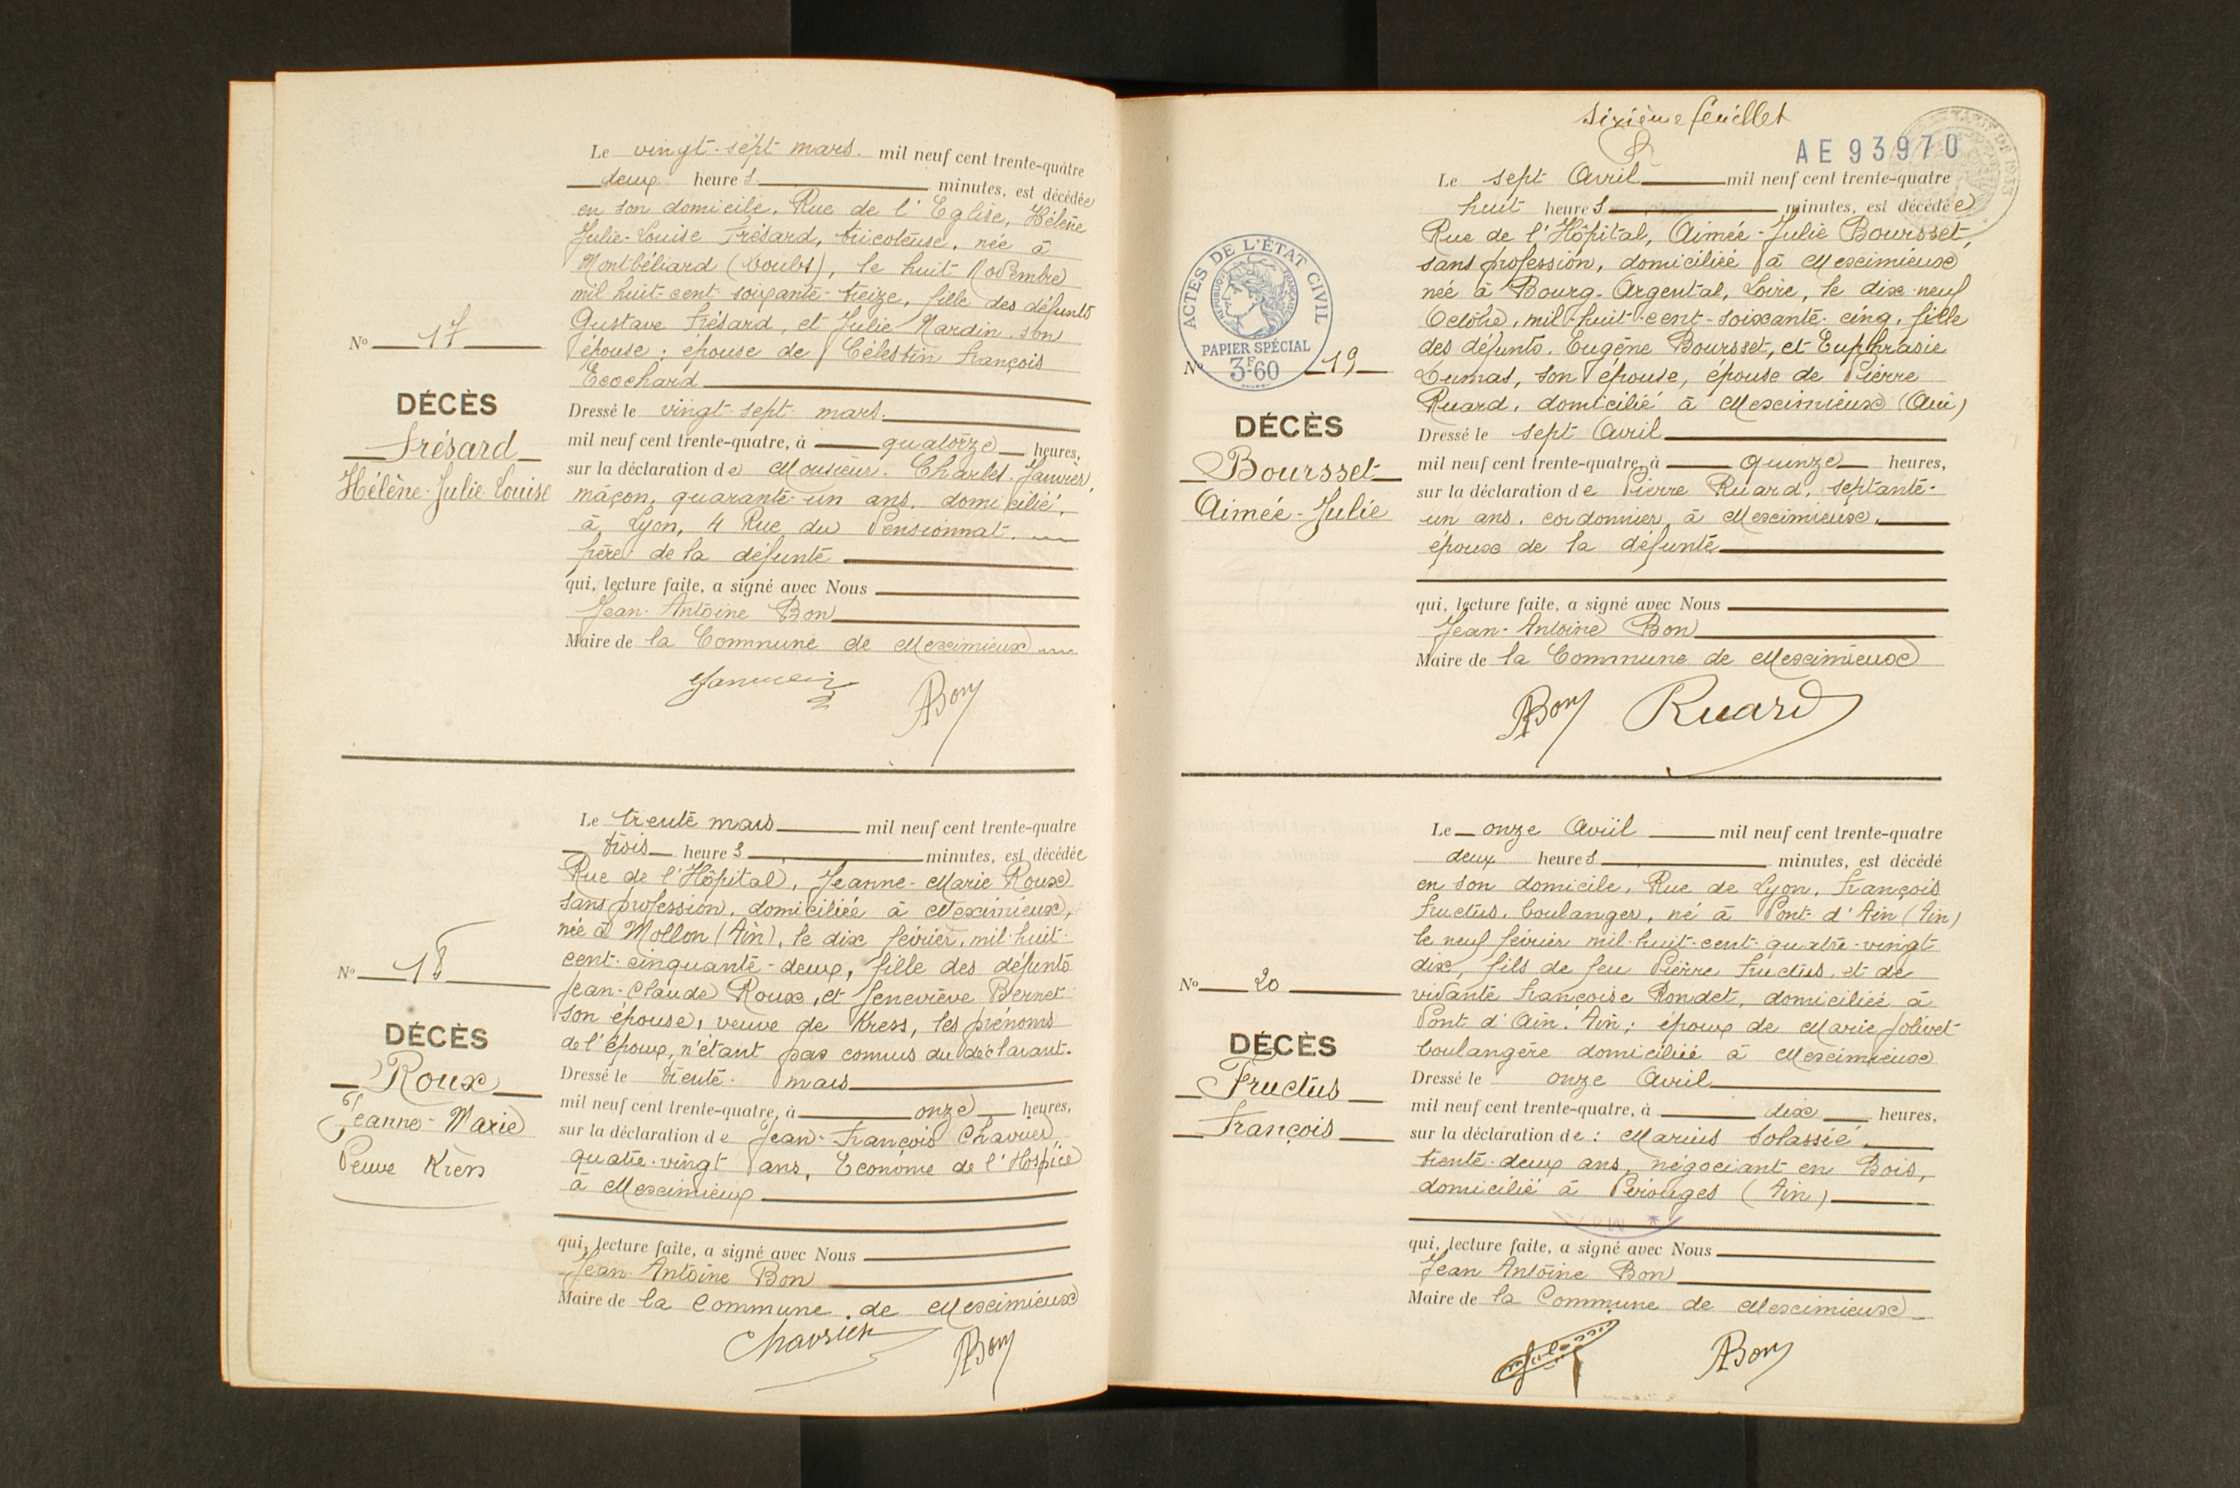 Le vingt-sept mars. mil neuf cent trente-quatre
deux heures minutes, est décédée
en son domicile, Rue de l'Eglise, Hélène
Julie-Louise Frésard, tricoteuse, née à
Montbéliard (Doubs), le huit Novembre
mil huit-cent-soixante-treize, fille des défunts
Gustave Frésard, et Julie Nardin son
épouse; épouse de Célestin François
Ecochard
Dressé le vingt-sept mars.
mil neuf cent trente-quatre, à quatorze heures,
sur la déclaration de Monsieur Charles
maçon, quarante-un ans, domicilié
à Lyon, 4 Rue du Pensionnat.
de la défunte
qui, lecture faite, a signé avec Nous
Jean-Antoine Bon
Maire de la Commune de Meximieux
Bon
No 17
DÉCÈS
Frésard
Hélène-Julie Louise
Le trente mars mil neuf cent trente-quatre
trois heures minutes, est décédée
Rue de l'Hôpital, Jeanne-Marie Roux
sans profession, domiciliée à Meximieux,
née à Mollon (Ain), le dix février, mil-huit-
cent-cinquante-deux, fille des défunts
Jean-Claude Roux, et Geneviève Bernet
son épouse, veuve de Kress, les prénoms
de l'époux, n'étant pas connus du déclarant.
Dressé le trente mars
mil neuf cent trente-quatre, à onze heures,
sur la déclaration de Jean-François Charvier
quatre-vingt ans, Econôme de l'Hospice
à Meximieux
qui, lecture faite, a signé avec Nous
Jean Antoine Bon
Maire de la Commune de Meximieux
Bon
No 18
DÉCÈS
Roux
Jeanne-Marie
Veuve
Sixième feuillet
AE 93970
Le sept Avril mil neuf cent trente-quatre
huit heures minutes, est décédée
Rue de l'Hôpital, Aimée-Julie Boursset,
sans profession, domiciliée à Meximieux
née à Bourg-Argental, Loire, le dix-neuf
Octobre, mil-huit-cent-soixante-cinq, fille
des défunts Eugène Boursset, et Euphrasie
Dumas, son épouse, épouse de Pierre
Ruard, domicilié à Meximieux (Ain)
Dressé le sept Avril
mil neuf cent trente-quatre, à quinze heures,
sur la déclaration de Pierre Ruard, septante-
un ans, cordonnier à Meximieux,
époux de la défunte
qui, lecture faite, a signé avec Nous
Jean-Antoine Bon
Maire de la Commune de Meximieux
Bon Ruard
ACTES DE L'ÉTAT CIVIL
RÉPUBLIQUE FRANÇAISE
PAPIER SPÉCIAL
3F60
No 19
DÉCÈS
Boursset
Aimée-Julie
Le onze Avril mil neuf cent trente-quatre
deux heures minutes, est décédé
en son domicile, Rue de Lyon, François
Fructus, boulanger, né à Pont-d'Ain (Ain)
le neuf février mil-huit-cent-quatre-vingt-
dix, fils de feu Pierre Fructus, et de
vivante Françoise Rondet, domiciliée à
Pont d'Ain. Ain; époux de Marie Jolivet
boulangère domiciliée à Meximieux
Dressé le onze Avril
mil neuf cent trente-quatre, à dix heures,
sur la déclaration de: Marius Solassié
trente-deux ans, négociant en Bois,
domicilié à Pérouges (Ain)
qui, lecture faite, a signé avec Nous
Jean Antoine Bon
Maire de la Commune de Meximieux
Bon
No 20
DÉCÈS
Fructus
François